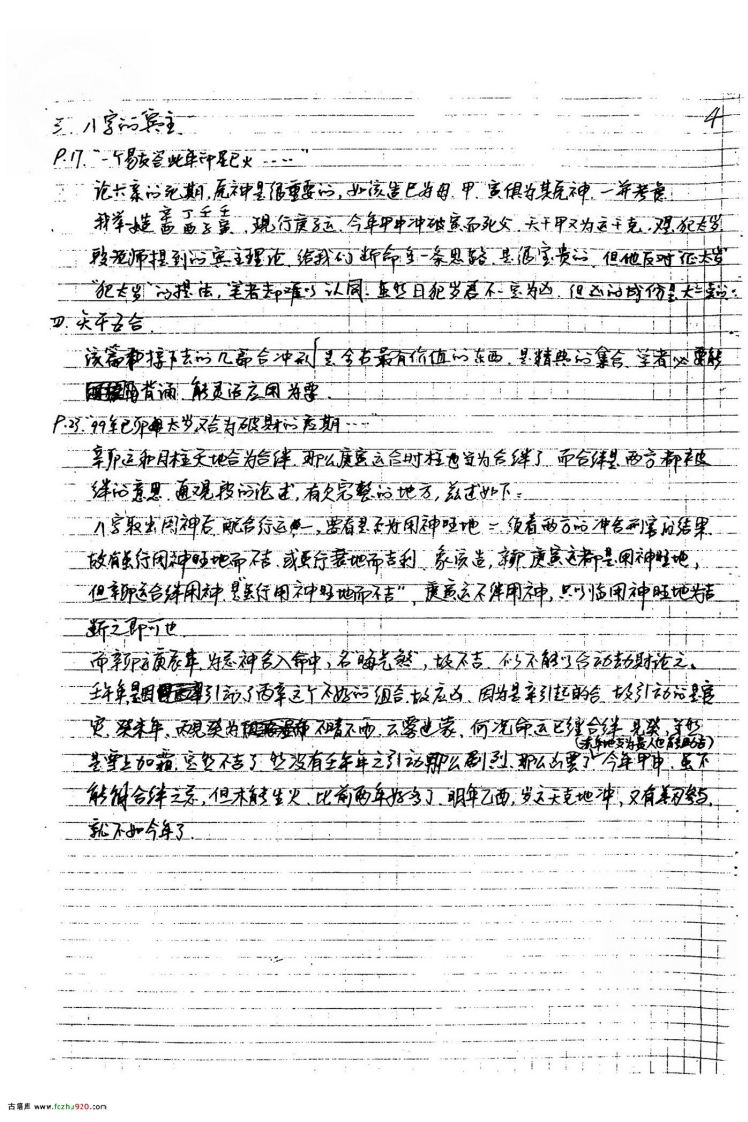 4
三、八字的宾主
P.17. "一个易友答此年
论六亲的死期,原神是很重要的,如该造巳为母,甲、寅俱为其原神,一并考虑.
我举 造 辛酉 丁酉 壬子 壬寅,现行庚子运,今年甲申冲破寅而死父,天干甲又为运干克,理犯太岁.
段老师提到的宾主理论,给我们断命多一条思路,是很宝贵的,但他反对"征太岁"
"犯太岁"的提法,笔者却难以认同.虽然日犯岁君不一定为凶,但凶的成份是大一点的.
四、天干五合
该篇和接下去的几篇合冲刑 是全书最有价值的东西,是精典的集合,学者必要能
背诵,能灵活应用为要.
P.23. "99年己卯 太岁又合为破财的应期……"
辛卯运和日柱天地合为合绊,那么庚寅运合时柱也定为合绊了,而合绊是两方都被
绊的意思,通观段的论述,有欠完整的地方,兹述如下:
八字取出用神后,配合行运 一,要看是否为用神旺地 二、须看两方的冲合刑害的结果,
故有虽行用神旺地而不吉,或虽行 地而吉利,象该造,辛卯、庚寅运都是用神旺地,
但辛卯运合绊用神,"虽行用神旺地而不吉",庚寅运不绊用神,只以临用神旺地为吉
断之即可也.
而辛卯运庚辰年,为忌神合入命中,名"晦 煞",故不吉,似不能以合动劫财论之.
壬午年是 引动了丙辛这个不好的组合,故应凶,因为是辛引起的合,故引动的是
实,癸未年,丙见癸为 不晴不雨,云雾迷蒙,何况命运已经合绊,见癸,
(未年地支为 人也有助吉)
是雪上加霜,定然不吉了,然没有壬午年之引动那么剧烈,那么凶罢了,今年甲申,虽不
能解合绊之忌,但木能生火,比前两年好多了,明年乙酉,岁运天克地冲,又有
就不如今年了.
古籍库 www.fczhu920.com